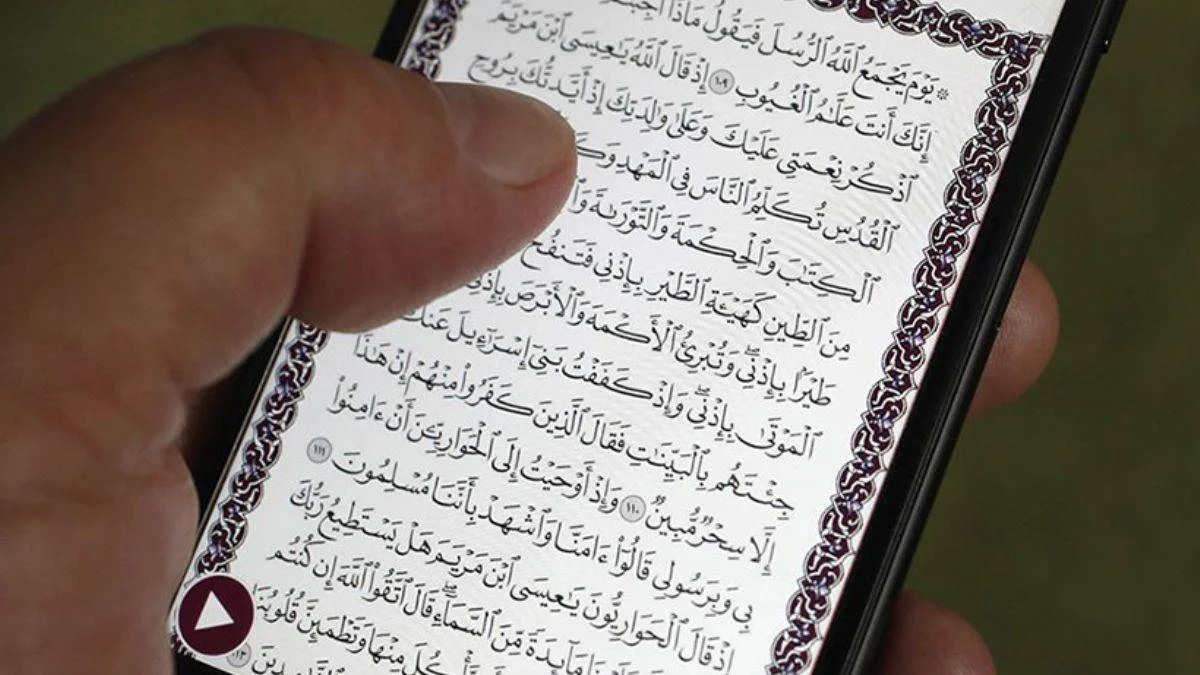 يَوْمَ يَجْمَعُ ٱللَّهُ ٱلرُّسُلَ فَيَقُولُ مَاذَآ
إِنَّكَ أَنتَ عَلَّٰمُ ٱلْغُيُوبِ ١٠٩ إِذْ قَالَ ٱللَّهُ يَٰعِيسَى ٱبْنَ مَرْيَمَ
ٱذْكُرْ نِعْمَتِي عَلَيْكَ وَعَلَىٰ وَٰلِدَتِكَ إِذْ أَيَّدتُّكَ بِرُوحِ
ٱلْقُدُسِ تُكَلِّمُ ٱلنَّاسَ فِي ٱلْمَهْدِ
ٱلْكِتَٰبَ وَٱلْحِكْمَةَ وَٱلتَّوْرَىٰةَ
مِنَ ٱلطِّينِ كَهَيْـَٔةِ ٱلطَّيْرِ بِإِذْنِي فَتَنفُخُ
طَيْرَۢا بِإِذْنِيۖ وَتُبْرِئُ ٱلْأَكْمَهَ وَٱلْأَبْرَصَ بِإِذْنِيۖ
ٱلْمَوْتَىٰ بِإِذْنِيۖ وَإِذْ كَفَفْتُ بَنِيٓ إِسْرَٰٓءِيلَ عَنكَ
جِئْتَهُم بِٱلْبَيِّنَٰتِ فَقَالَ ٱلَّذِينَ كَفَرُواْ مِنْهُمْ إِنْ هَٰذَآ
إِلَّا سِحْرٌ مُّبِينٌ ١١٠ وَإِذْ أَوْحَيْتُ إِلَى ٱلْحَوَارِيِّـۧنَ أَنْ ءَامِنُواْ
بِي وَبِرَسُولِي قَالُوٓاْ ءَامَنَّا وَٱشْهَدْ بِأَنَّنَا مُسْلِمُونَ ١١١
إِذْ قَالَ ٱلْحَوَارِيُّونَ يَٰعِيسَى ٱبْنَ مَرْيَمَ هَلْ يَسْتَطِيعُ رَبُّكَ
مَآئِدَةً مِّنَ ٱلسَّمَآءِۖ قَالَ ٱتَّقُواْ ٱللَّهَ إِن كُنتُم
مِنْهَا وَتَطْمَئِنَّ قُلُوبُنَا